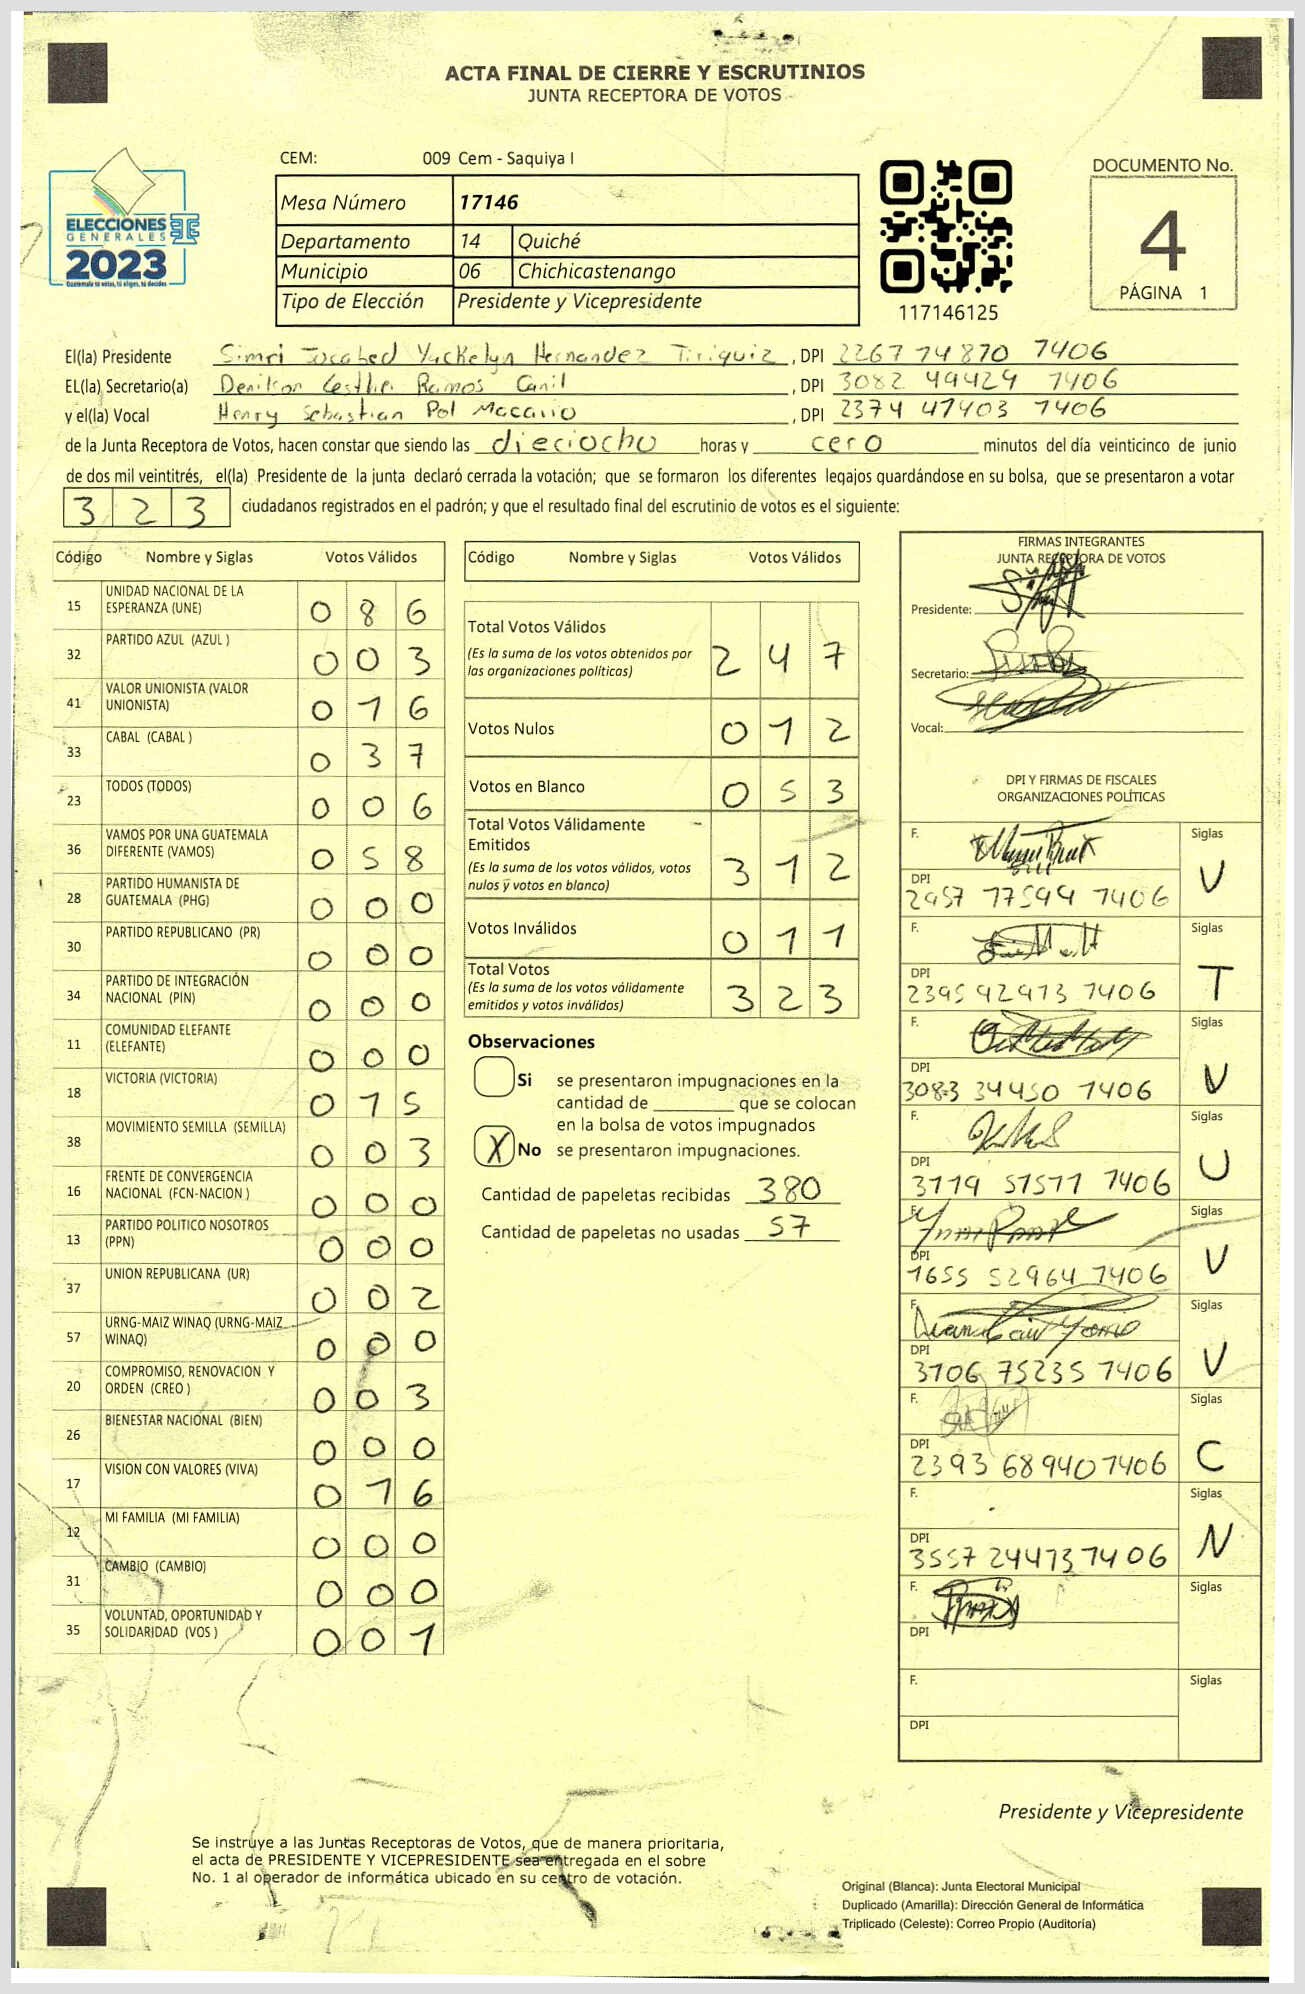 ACTA FINAL DE CIERRE Y ESCRUTINIOS
JUNTA RECEPTORA DE VOTOS
ELECCIONES
GENERALES
2023
Guatemala tú votas, tú eliges, tú decides
CEM: 009 Cem - Saquiya I
Mesa Número 17146
Departamento 14 Quiché
Municipio 06 Chichicastenango
Tipo de Elección Presidente y Vicepresidente
117146125
DOCUMENTO No.
4
PÁGINA 1
El(la) Presidente Simri Yackelyn Hernandez Tiriquiz , DPI 2267 74870 7406
EL(la) Secretario(a) Ramos Canil , DPI 3082 49429 7406
y el(la) Vocal Henry Sebastian Pol Macario , DPI 2374 47403 7406
de la Junta Receptora de Votos, hacen constar que siendo las dieciocho horas y cero minutos del día veinticinco de junio
de dos mil veintitrés, el(la) Presidente de la junta declaró cerrada la votación; que se formaron los diferentes legajos guardándose en su bolsa, que se presentaron a votar
323 ciudadanos registrados en el padrón; y que el resultado final del escrutinio de votos es el siguiente:
Código Nombre y Siglas Votos Válidos
15 UNIDAD NACIONAL DE LA ESPERANZA (UNE) 086
32 PARTIDO AZUL (AZUL ) 003
41 VALOR UNIONISTA (VALOR UNIONISTA) 016
33 CABAL (CABAL ) 037
23 TODOS (TODOS) 006
36 VAMOS POR UNA GUATEMALA DIFERENTE (VAMOS) 058
28 PARTIDO HUMANISTA DE GUATEMALA (PHG) 000
30 PARTIDO REPUBLICANO (PR) 000
34 PARTIDO DE INTEGRACIÓN NACIONAL (PIN) 000
11 COMUNIDAD ELEFANTE (ELEFANTE) 000
18 VICTORIA (VICTORIA) 015
38 MOVIMIENTO SEMILLA (SEMILLA) 003
16 FRENTE DE CONVERGENCIA NACIONAL (FCN-NACION ) 000
13 PARTIDO POLITICO NOSOTROS (PPN) 000
37 UNION REPUBLICANA (UR) 002
57 URNG-MAIZ WINAQ (URNG-MAIZ WINAQ) 000
20 COMPROMISO, RENOVACION Y ORDEN (CREO ) 003
26 BIENESTAR NACIONAL (BIEN) 000
17 VISION CON VALORES (VIVA) 016
12 MI FAMILIA (MI FAMILIA) 000
31 CAMBIO (CAMBIO) 000
35 VOLUNTAD, OPORTUNIDAD Y SOLIDARIDAD (VOS ) 001
Código Nombre y Siglas Votos Válidos
Total Votos Válidos 247
(Es la suma de los votos obtenidos por
las organizaciones políticas)
Votos Nulos 012
Votos en Blanco 053
Total Votos Válidamente
Emitidos 312
(Es la suma de los votos válidos, votos
nulos y votos en blanco)
Votos Inválidos 011
Total Votos 323
(Es la suma de los votos válidamente
emitidos y votos inválidos)
Observaciones
Si se presentaron impugnaciones en la
cantidad de que se colocan
en la bolsa de votos impugnados
X No se presentaron impugnaciones.
Cantidad de papeletas recibidas 380
Cantidad de papeletas no usadas 57
FIRMAS INTEGRANTES
JUNTA RECEPTORA DE VOTOS
Presidente:
Secretario:
Vocal:
DPI Y FIRMAS DE FISCALES
ORGANIZACIONES POLÍTICAS
F. Siglas
DPI 2957 77594 7406 V
F. Siglas
DPI 2395 92973 7406 T
F. Siglas
DPI 3083 34450 7406 V
F. Siglas
DPI 3119 51511 7406 U
F. Siglas
DPI 1655 52964 7406 V
F. Siglas
DPI 3706 75235 7406 V
F. Siglas
DPI 2393 68940 7406 C
F. Siglas
DPI 3557 24473 7406 N
F. Siglas
DPI
F. Siglas
DPI
Presidente y Vicepresidente
Se instruye a las Juntas Receptoras de Votos, que de manera prioritaria,
el acta de PRESIDENTE Y VICEPRESIDENTE sea entregada en el sobre
No. 1 al operador de informática ubicado en su centro de votación.
Original (Blanca): Junta Electoral Municipal
Duplicado (Amarilla): Dirección General de Informática
Triplicado (Celeste): Correo Propio (Auditoría)